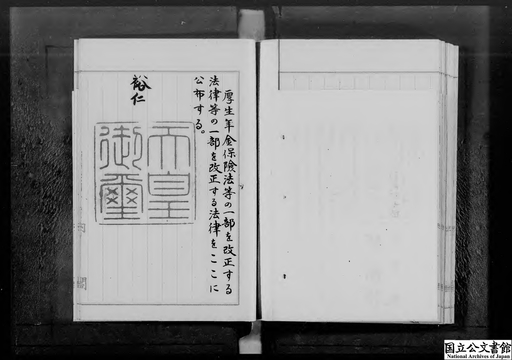 厚生年金保險法等の一部を改正する
法律等の一部を改正する法律をここに
公布する。
裕仁
天皇
御璽
国立公文書館
National Archives of Japan